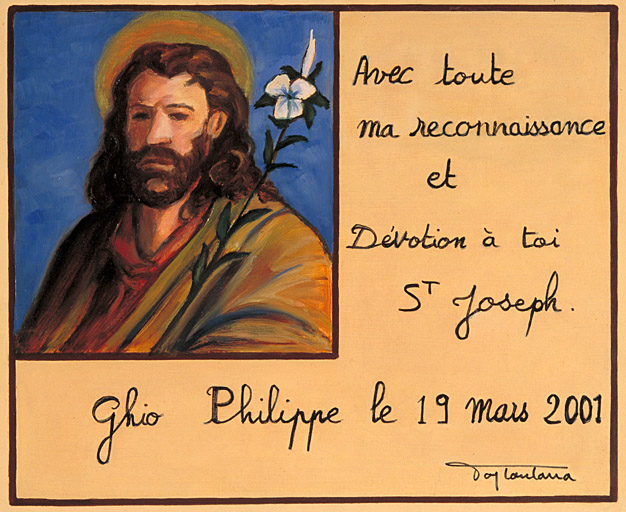 Avec toute
ma reconnaissance
et
Dévotion à toi
Sᵀ Joseph.
Ghio Philippe le 19 mars 2001